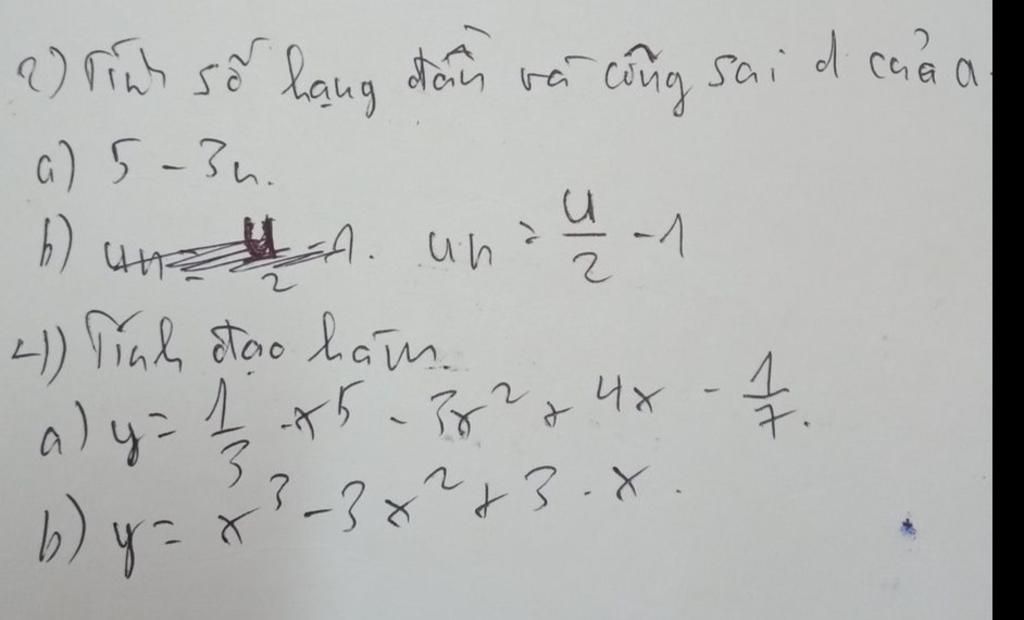 2) Tính số hạng đầu và công sai d của a
a) 5 - 3n.
b) un = u/2 - 1. un = u/2 - 1
4) Tính đạo hàm.
a) y = 1/3 . x⁵ - 3x² + 4x - 1/7.
b) y = x³ - 3x² + 3 . x.